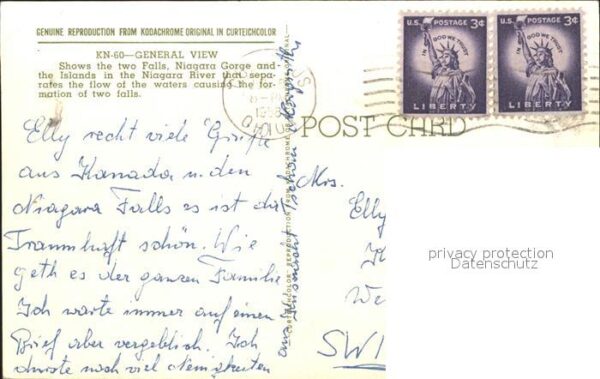 GENUINE REPRODUCTION FROM KODACHROME ORIGINAL IN CURTEICHCOLOR
KN-60—GENERAL VIEW
Shows the two Falls, Niagara Gorge and
the Islands in the Niagara River that sepa-
rates the flow of the waters causing the for-
mation of two falls.
U.S. POSTAGE 3¢
IN GOD WE TRUST
LIBERTY
U.S. POSTAGE 3¢
IN GOD WE TRUST
LIBERTY
POST CARD
Elly recht viele Grüße
aus Kanada u. den
Niagara Falls es ist da
Traumhaft schön. Wie
geth es der ganzen Familie
Ich warte immer auf einen
Brief aber vergeblich. Ich
wüsste noch viel Neuigkeiten
CURTEICHCOLOR REPRODUCTION FROM KODACHROME ORIGINAL
Mrs.
Elly
We
SWI
privacy protection
Datenschutz